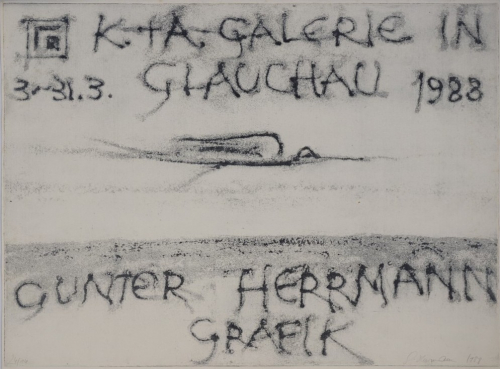 K.+A.-GALERIE IN
3.-31.3. GLAUCHAU 1988
GUNTER HERRMANN
GRAFIK